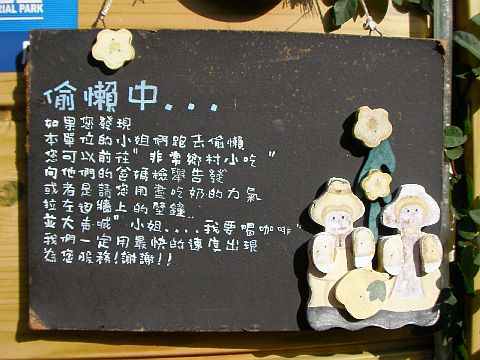 RIAL PARK
偷懶中...
如果您發現
本單位的小姐們跑去偷懶
您可以前往"非常鄉村小吃"
向他們的爸媽檢舉告發
或者是請您用盡吃奶的力氣
拉左邊牆上的壁鐘..
並大聲喊"小姐....我要喝咖啡"
我們一定用最快的速度出現
為您服務!謝謝!!